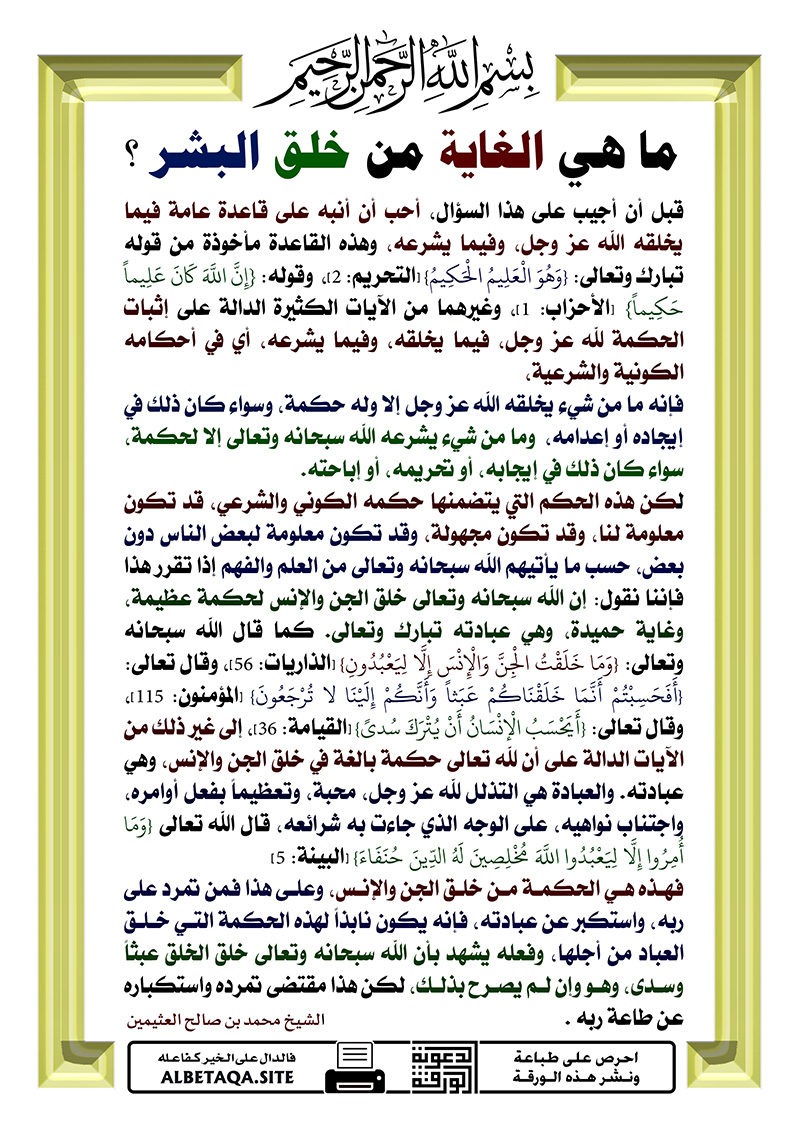 بِسْمِ اللَّهِ الرَّحْمَنِ الرَّحِيمِ
ما هي الغاية من خلق البشر ؟
قبل أن أجيب على هذا السؤال، أحب أن أنبه على قاعدة عامة فيما
يخلقه الله عز وجل، وفيما يشرعه، وهذه القاعدة مأخوذة من قوله
تبارك وتعالى: {وَهُوَ الْعَلِيمُ الْحَكِيمُ} [التحريم: 2]، وقوله: {إِنَّ اللَّهَ كَانَ عَلِيماً
حَكِيماً} [الأحزاب: 1]، وغيرهما من الآيات الكثيرة الدالة على إثبات
الحكمة لله عز وجل، فيما يخلقه، وفيما يشرعه، أي في أحكامه
الكونية والشرعية،
فإنه ما من شيء يخلقه الله عز وجل إلا وله حكمة، وسواء كان ذلك في
إيجاده أو إعدامه، وما من شيء يشرعه الله سبحانه وتعالى إلا لحكمة،
سواء كان ذلك في إيجابه، أو تحريمه، أو إباحته.
لكن هذه الحكم التي يتضمنها حكمه الكوني والشرعي، قد تكون
معلومة لنا، وقد تكون مجهولة، وقد تكون معلومة لبعض الناس دون
بعض، حسب ما يأتيهم الله سبحانه وتعالى من العلم والفهم إذا تقرر هذا
فإننا نقول: إن الله سبحانه وتعالى خلق الجن والإنس لحكمة عظيمة،
وغاية حميدة، وهي عبادته تبارك وتعالى. كما قال الله سبحانه
وتعالى: {وَمَا خَلَقْتُ الْجِنَّ وَالْإِنْسَ إِلَّا لِيَعْبُدُونِ} [الذاريات: 56]، وقال تعالى:
{أَفَحَسِبْتُمْ أَنَّمَا خَلَقْنَاكُمْ عَبَثاً وَأَنَّكُمْ إِلَيْنَا لا تُرْجَعُونَ} [المؤمنون: 115]،
وقال تعالى: {أَيَحْسَبُ الْإِنْسَانُ أَنْ يُتْرَكَ سُدىً} [القيامة: 36]، إلى غير ذلك من
الآيات الدالة على أن لله تعالى حكمة بالغة في خلق الجن والإنس، وهي
عبادته. والعبادة هي التذلل لله عز وجل، محبة، وتعظيماً بفعل أوامره،
واجتناب نواهيه، على الوجه الذي جاءت به شرائعه، قال الله تعالى {وَمَا
أُمِرُوا إِلَّا لِيَعْبُدُوا اللَّهَ مُخْلِصِينَ لَهُ الدِّينَ حُنَفَاءَ} [البينة: 5]
فهذه هي الحكمة من خلق الجن والإنس، وعلى هذا فمن تمرد على
ربه، واستكبر عن عبادته، فإنه يكون نابذاً لهذه الحكمة التي خلق
العباد من أجلها، وفعله يشهد بأن الله سبحانه وتعالى خلق الخلق عبثاً
وسدى، وهو وإن لم يصرح بذلك، لكن هذا مقتضى تمرده واستكباره
عن طاعة ربه .
الشيخ محمد بن صالح العثيمين
احرص على طباعة
ونشر هذه الورقة
الورقة الدعوية
فالدال على الخير كفاعله
ALBETAQA.SITE